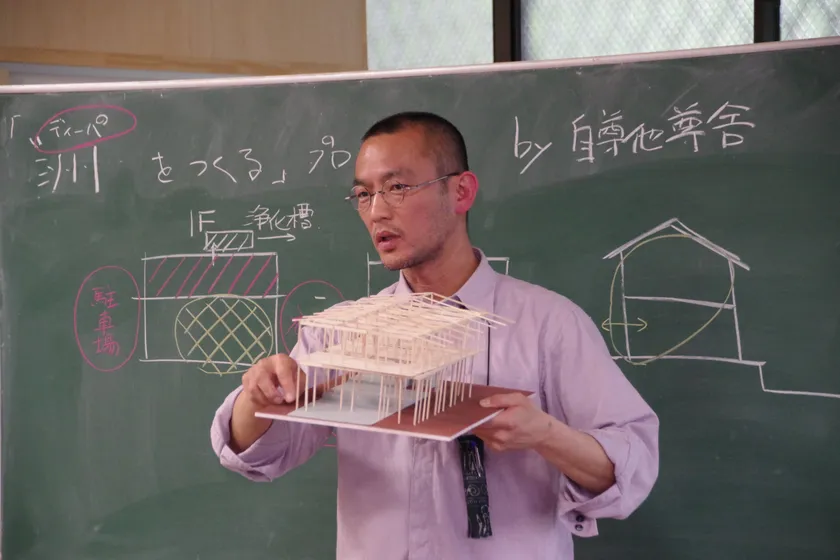 ディーパ
「洲をつくる」プロ by 自尊他尊舎
1F 浄化槽
駐車場